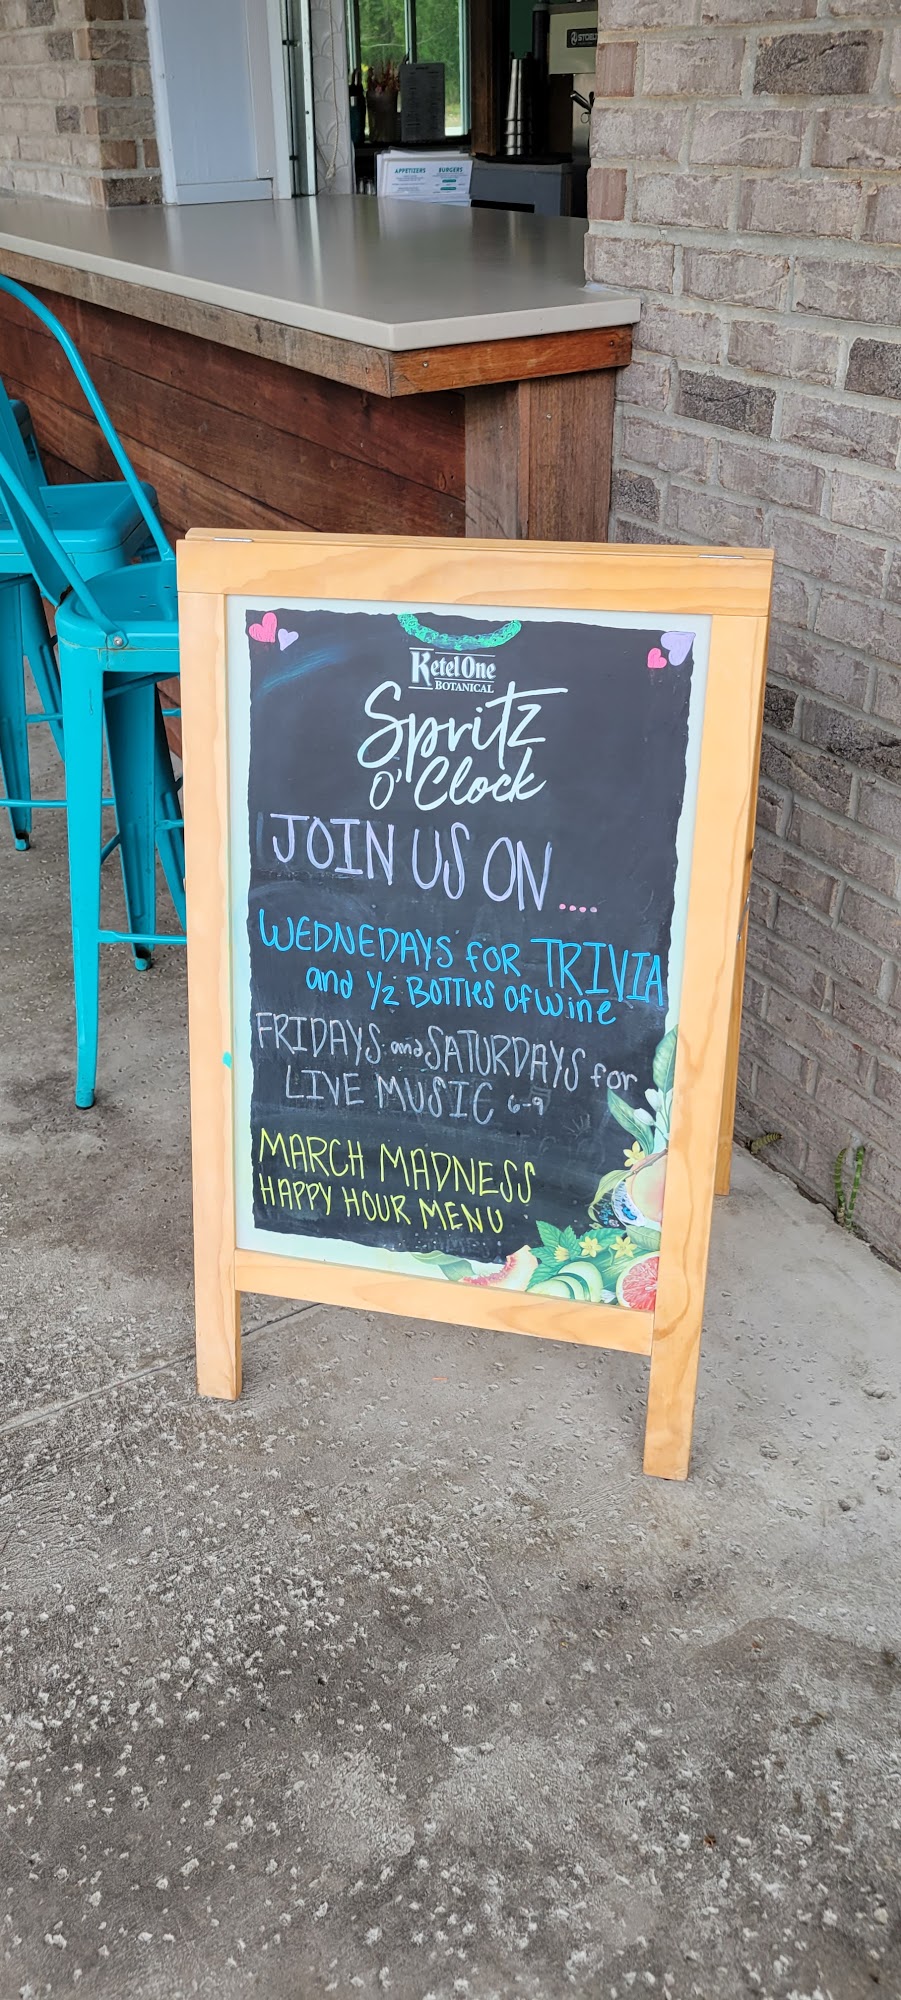 STOELT
APPETIZERS BURGERS
Ketel One
BOTANICAL
Spritz
O'Clock
JOIN US ON ....
WEDNEDAYS FOR TRIVIA
and 1/2 BOTTles OF wine
FRIDAYS and SATURDAYS for
LIVE MUSIC 6-9
MARCH MADNESS
HAPPY HOUR MENU